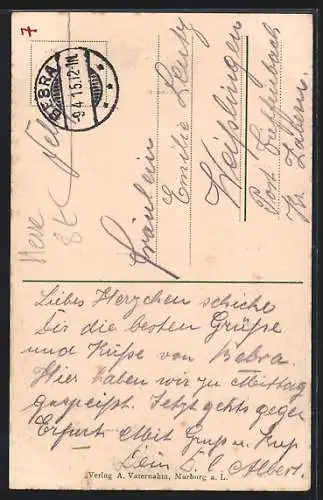 7
BEBRA
9.4.15.12-1N.
Fräulein
Emilie Lentz
Weislingen
Post Diessenbach
Kr. Zabern.
Liebes Herzchen schicke
Dir die besten Grüße
und Küße von Bebra.
Hier haben wir zu Mittag
gespeißt. Jetzt gehts gegen
Erfurt. Mit Gruß u. Kuß
Dein L. Albert.
Verlag A. Vaternahm, Marburg a. L.